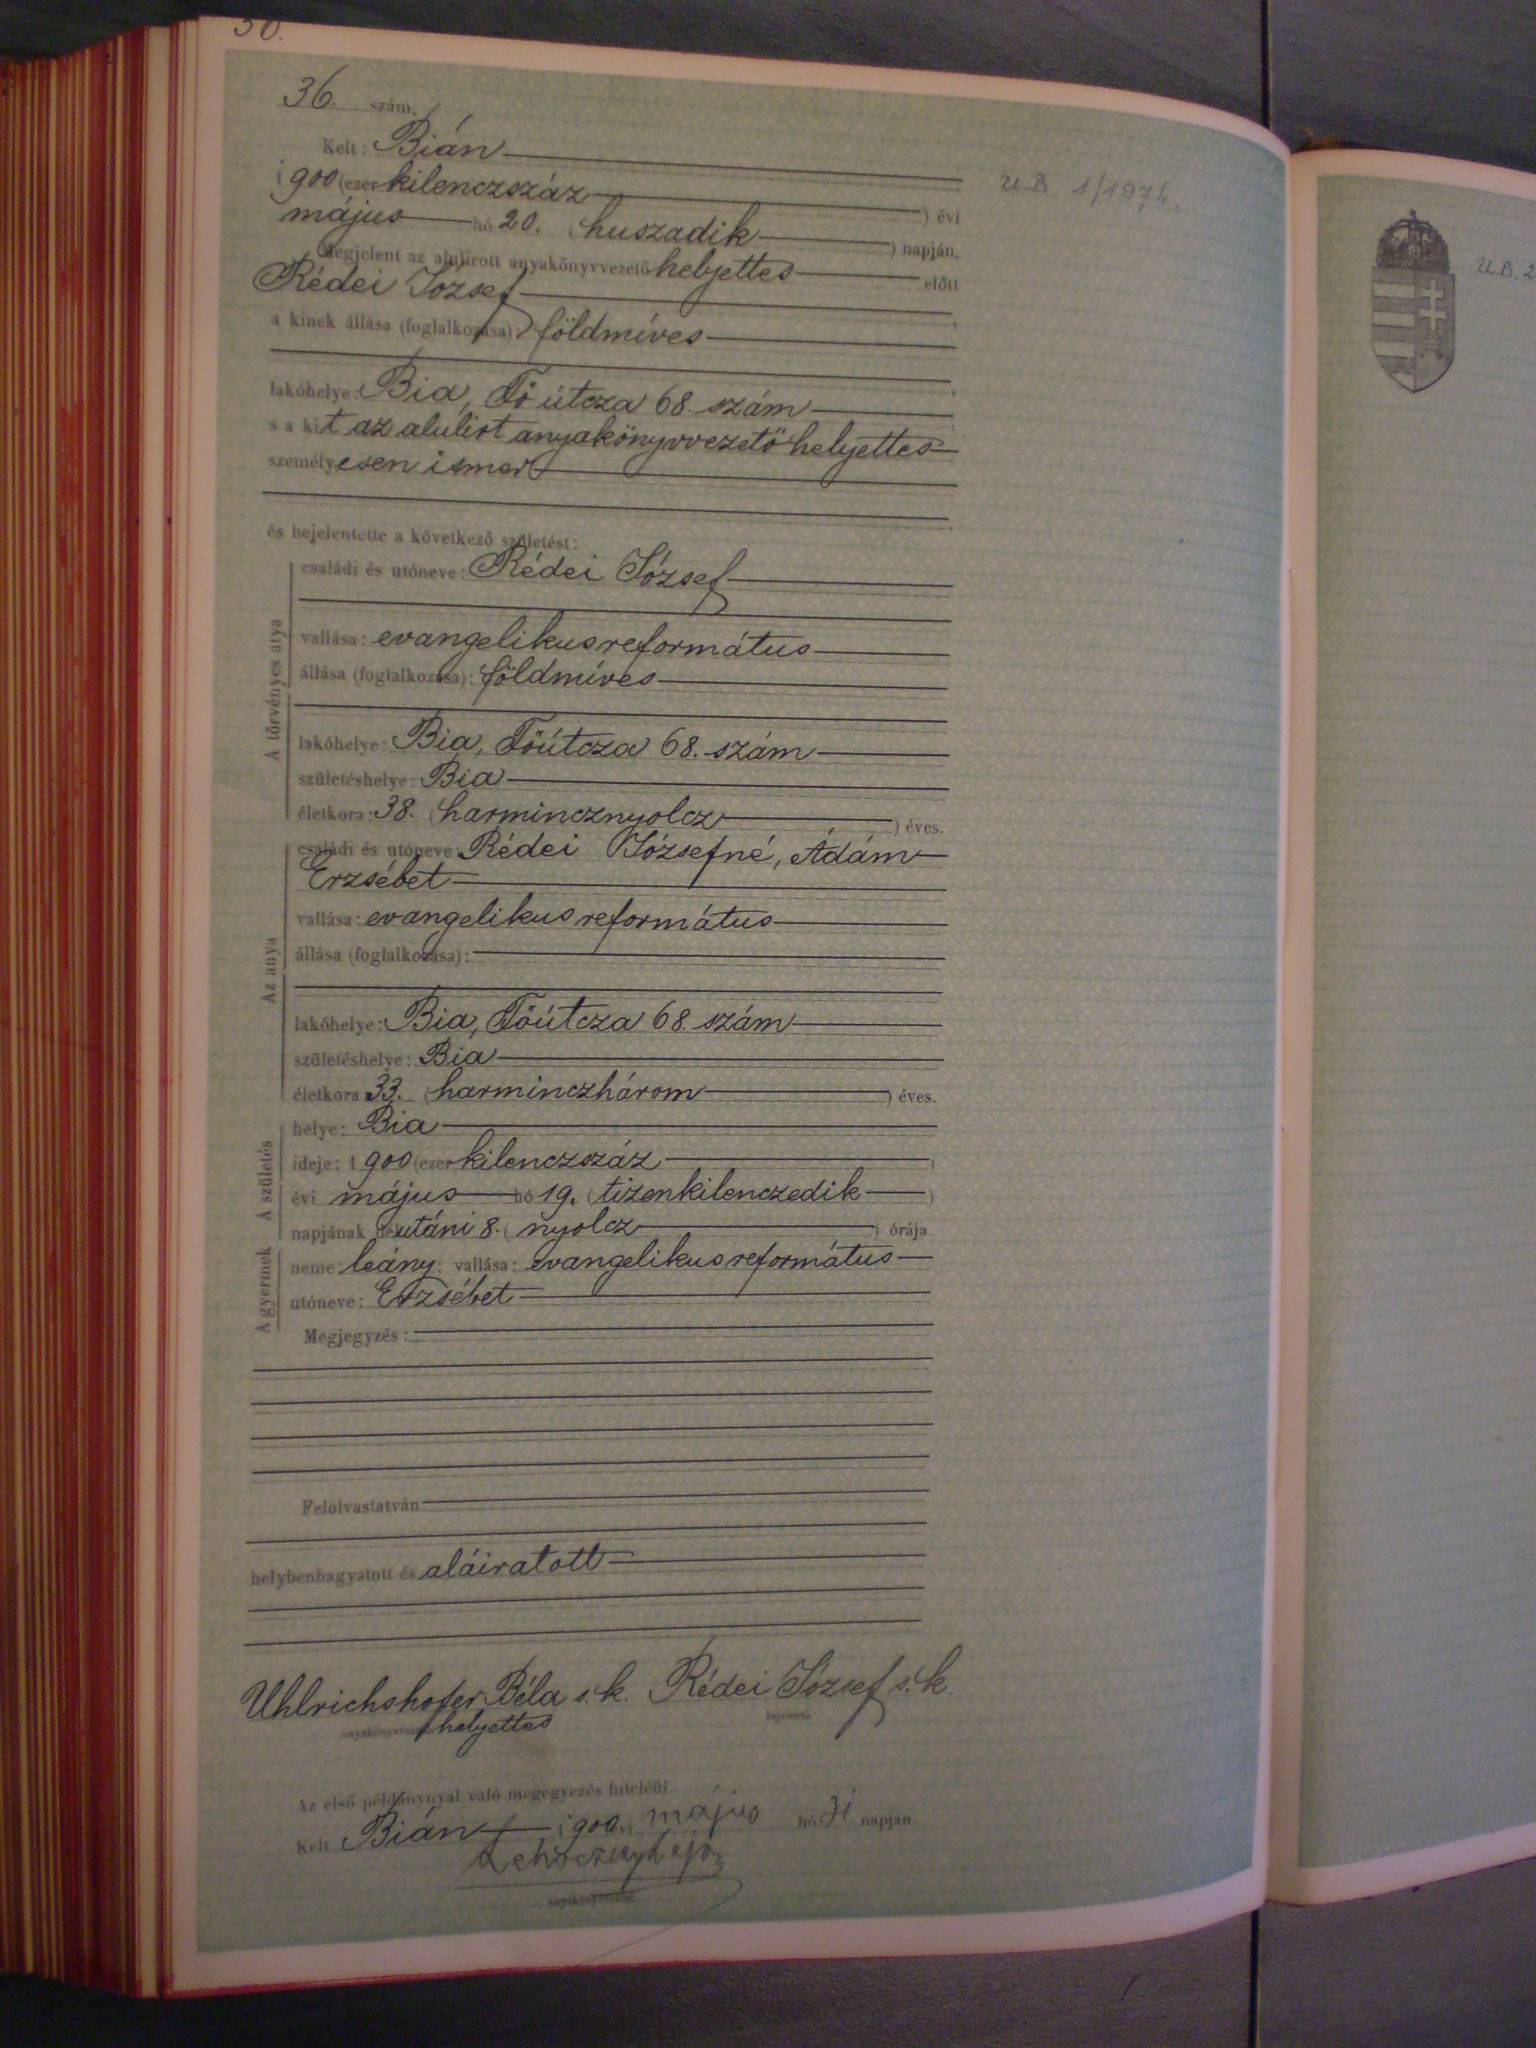 36. szám.
Kelt: Bián
1900 (ezer kilenczszáz ) évi
május hó 20. (huszadik ) napján.
Megjelent az alulirott anyakönyvvezető helyettes előtt
Rédei József
a kinek állása (foglalkozása): földmíves
lakóhelye: Bia, Fő útcza 68. szám
s a kit az alulírt anyakönyvvezető helyettes
személyesen ismer
és bejelentette a következő születést:
A törvényes atya
családi és utóneve: Rédei József
vallása: evangelikus református
állása (foglalkozása): földmíves
lakóhelye: Bia, Főútcza 68. szám
születéshelye: Bia
életkora: 38. (harmincznyolcz ) éves.
Az anya
családi és utóneve: Rédei Józsefné, Ádám
Erzsébet
vallása: evangelikus református
állása (foglalkozása):
lakóhelye: Bia, Főútcza 68. szám
születéshelye: Bia
életkora 33. (harminczhárom ) éves.
A születés
helye: Bia
ideje: 1900 (ezer kilenczszáz )
évi május hó 19. (tizenkilenczedik )
napjának délutáni 8. (nyolcz ) órája.
A gyermek
neme: leány; vallása: evangelikus református
utóneve: Erzsébet
Megjegyzés:
Felolvastatván
helybenhagyatott és aláiratott
Uhlrichshofer Béla s. k. Rédei József s. k.
anyakönyvvezető helyettes bejelentő.
Az első példánynyal való megegyezés hiteléül.
Kelt Bián 1900 évi május hó 31 napján.
anyakönyvvezető.
U.B 1/1974.
U.B. 2